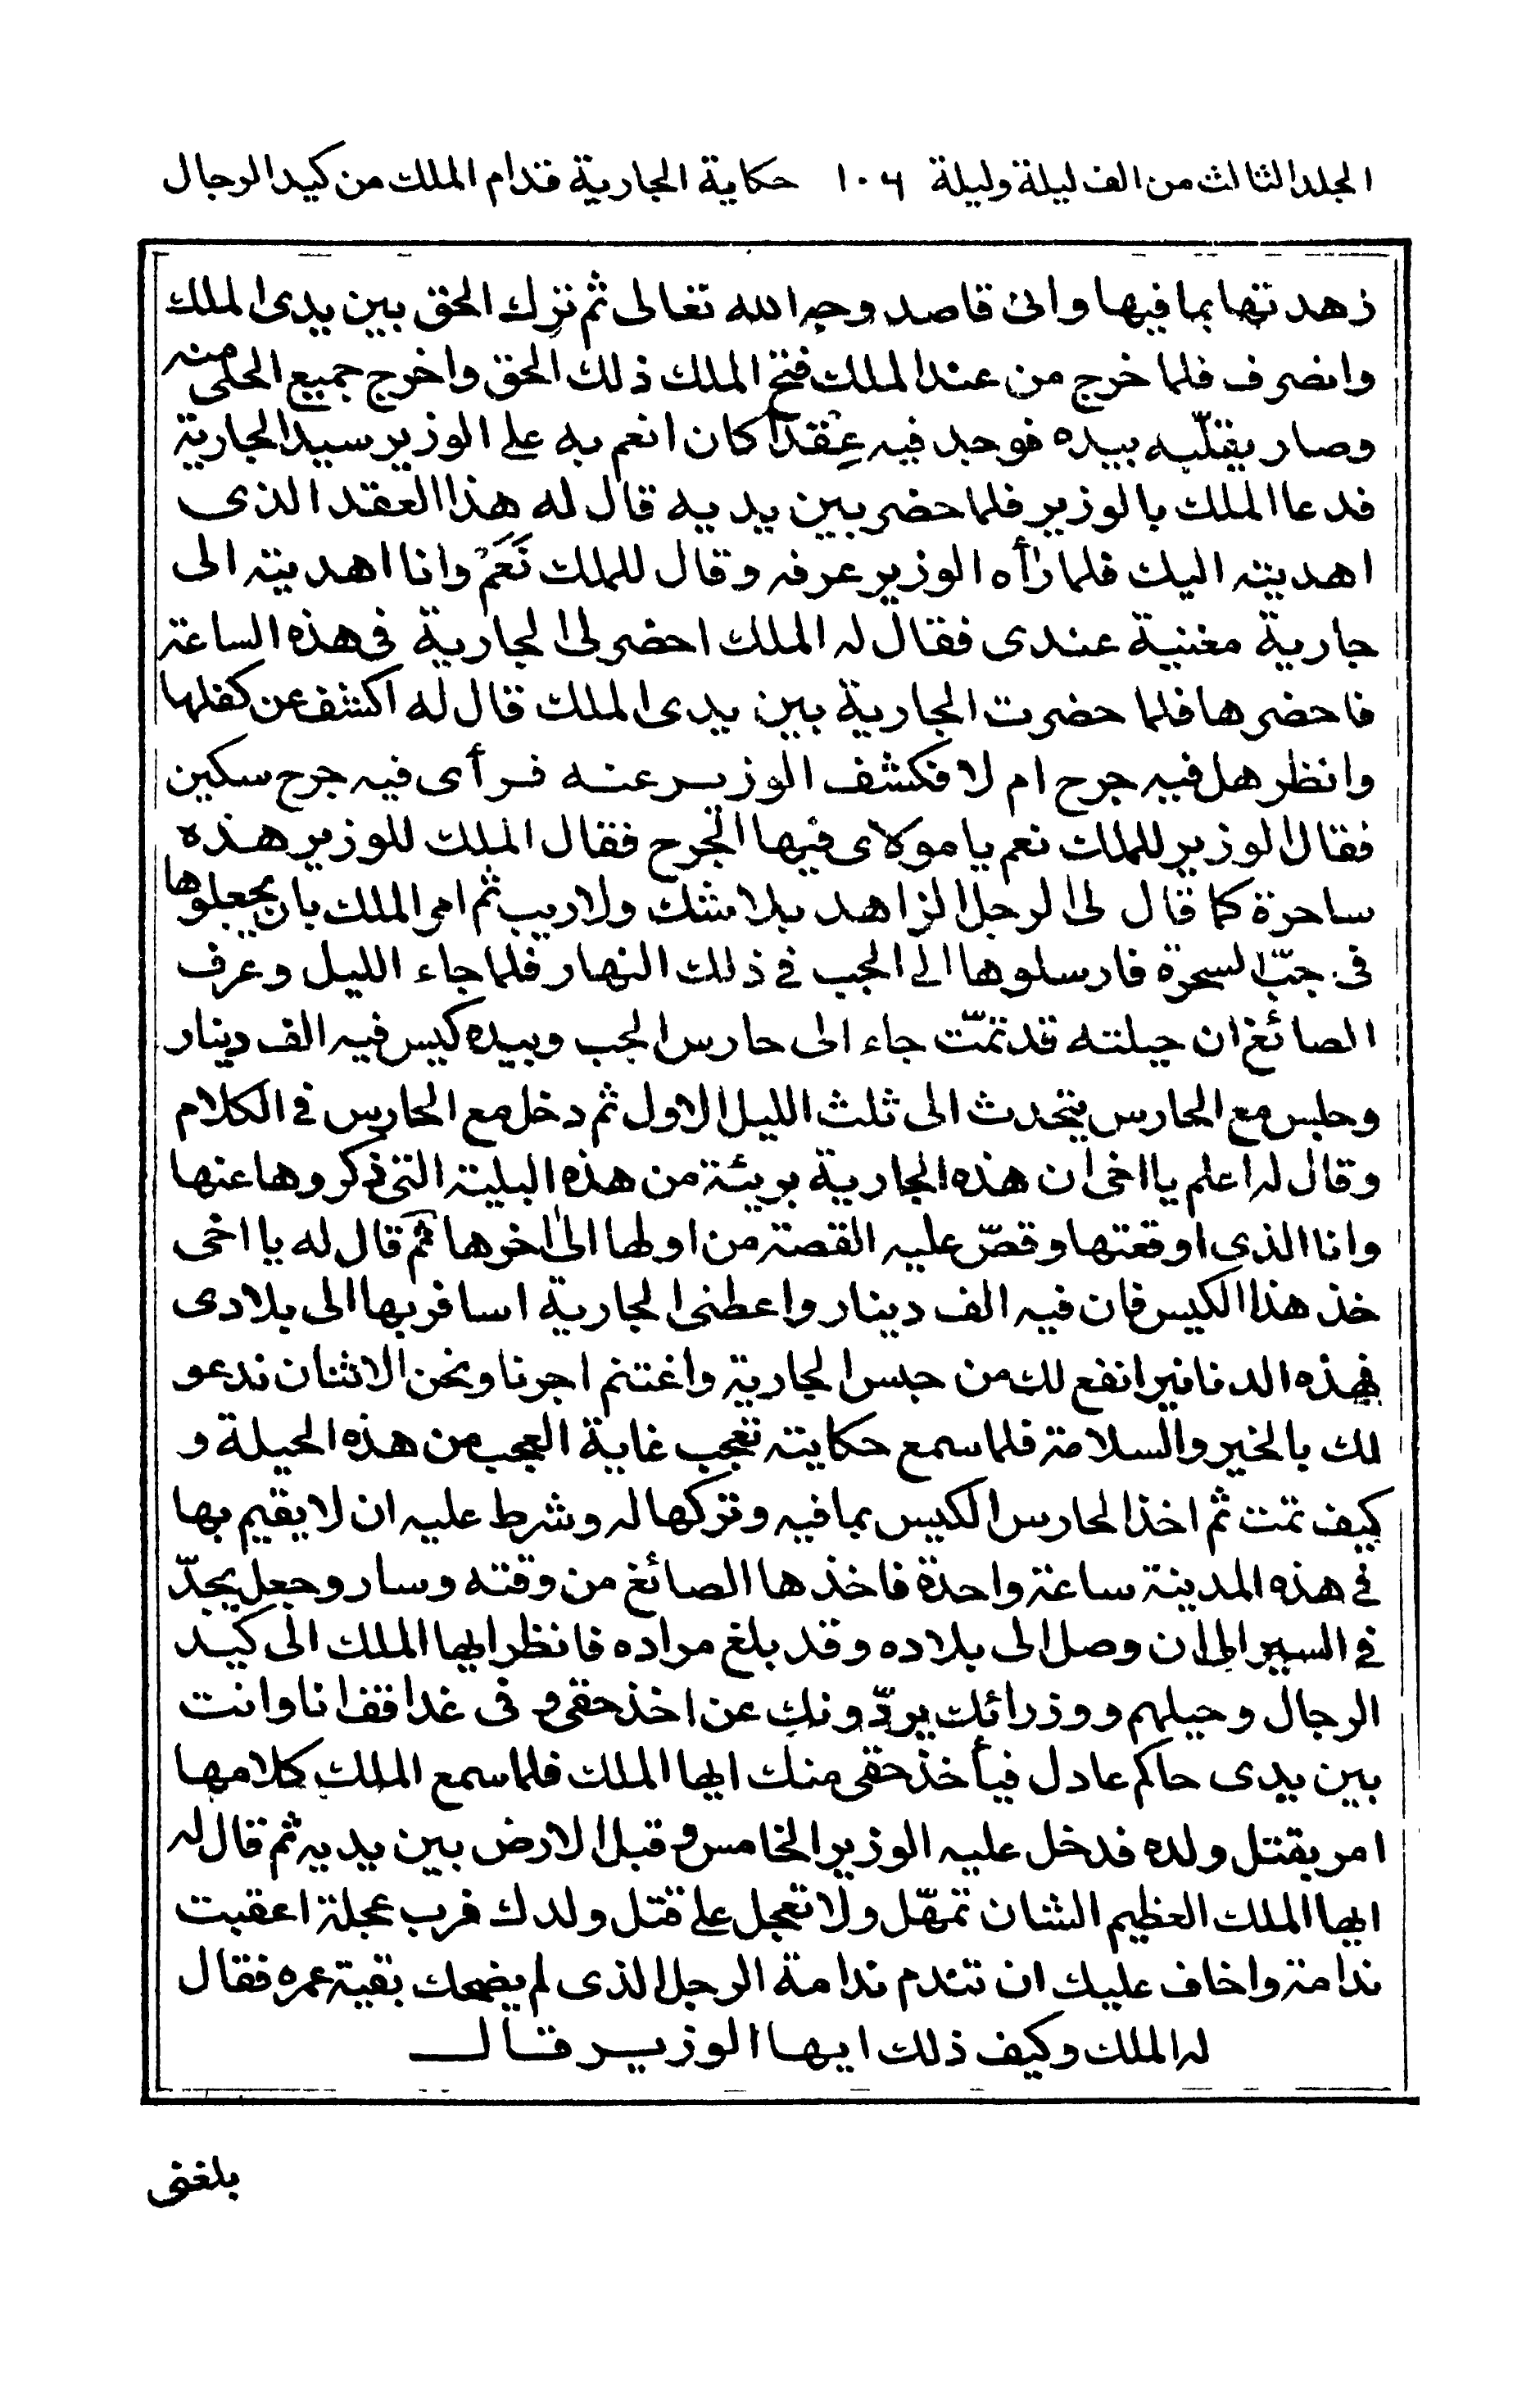 المجلد الثالث من الف ليلة وليلة ١٠٦ حكاية الجارية قدام الملك من كيد الرجال
زهدتها بما فيها وانى قاصد وجه الله تعالى ثم ترك الحق بين يدى الملك
وانصرف فلما خرج من عند الملك فتح الملك ذلك الحق واخرج جميع الحلى منه
وصار يقلّبه بيده فوجد فيه عِقْداً كان انعم به على الوزير سيد الجارية
فدعا الملك بالوزير فلما حضر بين يديه قال له هذا العقد الذى
اهديته اليك فلما رأه الوزير عرفه وقال للملك نَعَمْ وانا اهديته الى
جارية مغنية عندى فقال له الملك احضر لى الجارية فى هذه الساعة
فاحضرها فلما حضرت الجارية بين يدى الملك قال له اكشف عن كفلها
وانظر هل فيه جرح ام لا فكشف الوزير عنه فرأى فيه جرح سكين
فقال الوزير للملك نعم يا مولاى فيها الجرح فقال الملك للوزير هذه
ساحرة كما قال لى الرجل الزاهد بلا شك ولا ريب ثم امر الملك بان يجعلوها
فى جبّ السحرة فارسلوها الى الجب فى ذلك النهار فلما جاء الليل وعرف
الصائغ ان حيلته قد تمّت جاء الى حارس الجب وبيده كيس فيه الف دينار
وجلس مع الحارس يتحدث الى ثلث الليل الاول ثم دخل مع الحارس فى الكلام
وقال له اعلم يا اخى ان هذه الجارية بريئة من هذه البلية التى ذكروها عنها
وانا الذى اوقعتها وقصّ عليه القصة من اولها الى اخرها ثم قال له يا اخى
خذ هذا الكيس فان فيه الف دينار واعطنى الجارية اسافر بها الى بلادى
فهذه الدنانير انفع لك من حبس الجارية واغتنم اجرنا ونحن الاثنان ندعو
لك بالخير والسلامة فلما سمع حكايته تعجب غاية العجب من هذه الحيلة و
كيف تمت ثم اخذ الحارس الكيس بما فيه وتركها له وشرط عليه ان لا يقيم بها
فى هذه المدينة ساعة واحدة فاخذها الصائغ من وقته وسار وجعل يجدّ
فى السير الى ان وصل الى بلاده وقد بلغ مراده فانظر ايها الملك الى كيد
الرجال وحيلهم ووزرائك يردّونك عن اخذ حقى و فى غد اقف انا وانت
بين يدى حاكم عادل فيأخذ حقى منك ايها الملك فلما سمع الملك كلامها
امر بقتل ولده فدخل عليه الوزير الخامس و قبل الارض بين يديه ثم قال له
ايها الملك العظيم الشان تمهّل ولا تعجل على قتل ولدك فرب عجلة اعقبت
ندامة واخاف عليك ان تندم ندامة الرجل الذى لم يضحك بقية عمره فقال
له الملك وكيف ذلك ايها الوزير قال
بلغنى